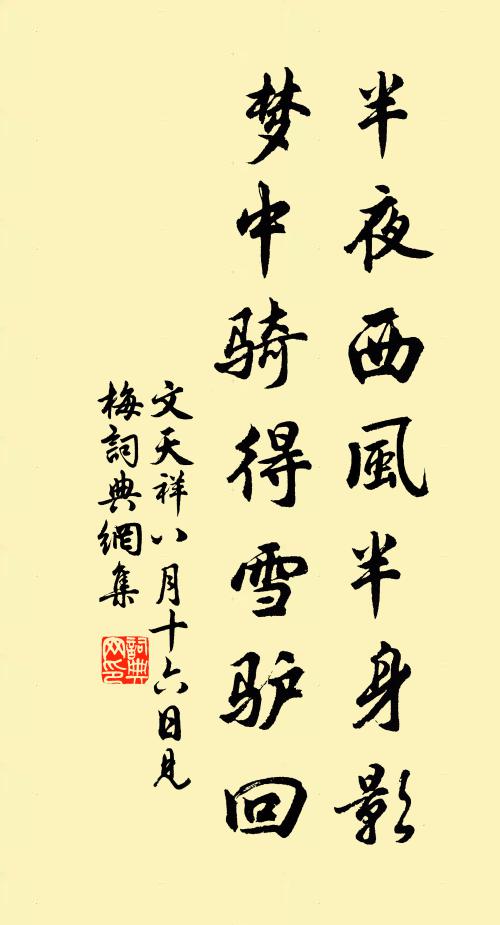 半夜西風半身影
梦中骑得雪驴回
文天祥八月十六日見
梅詞典網集
詞典网印